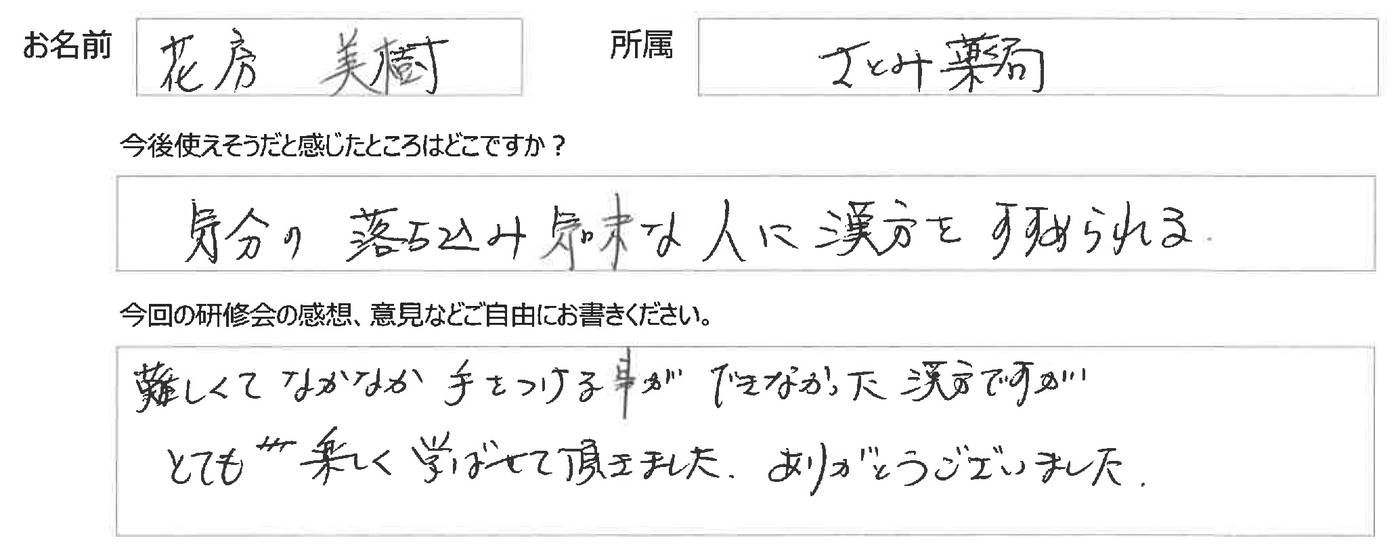 お名前 花房 美樹 所属 さとみ薬局
今後使えそうだと感じたところはどこですか？
気分の落ち込み気味な人に漢方をすすめられる.
今回の研修会の感想、意見などご自由にお書きください。
難しくてなかなか手をつける事ができなかった漢方ですが
とても楽しく学ばせて頂きました. ありがとうございました.